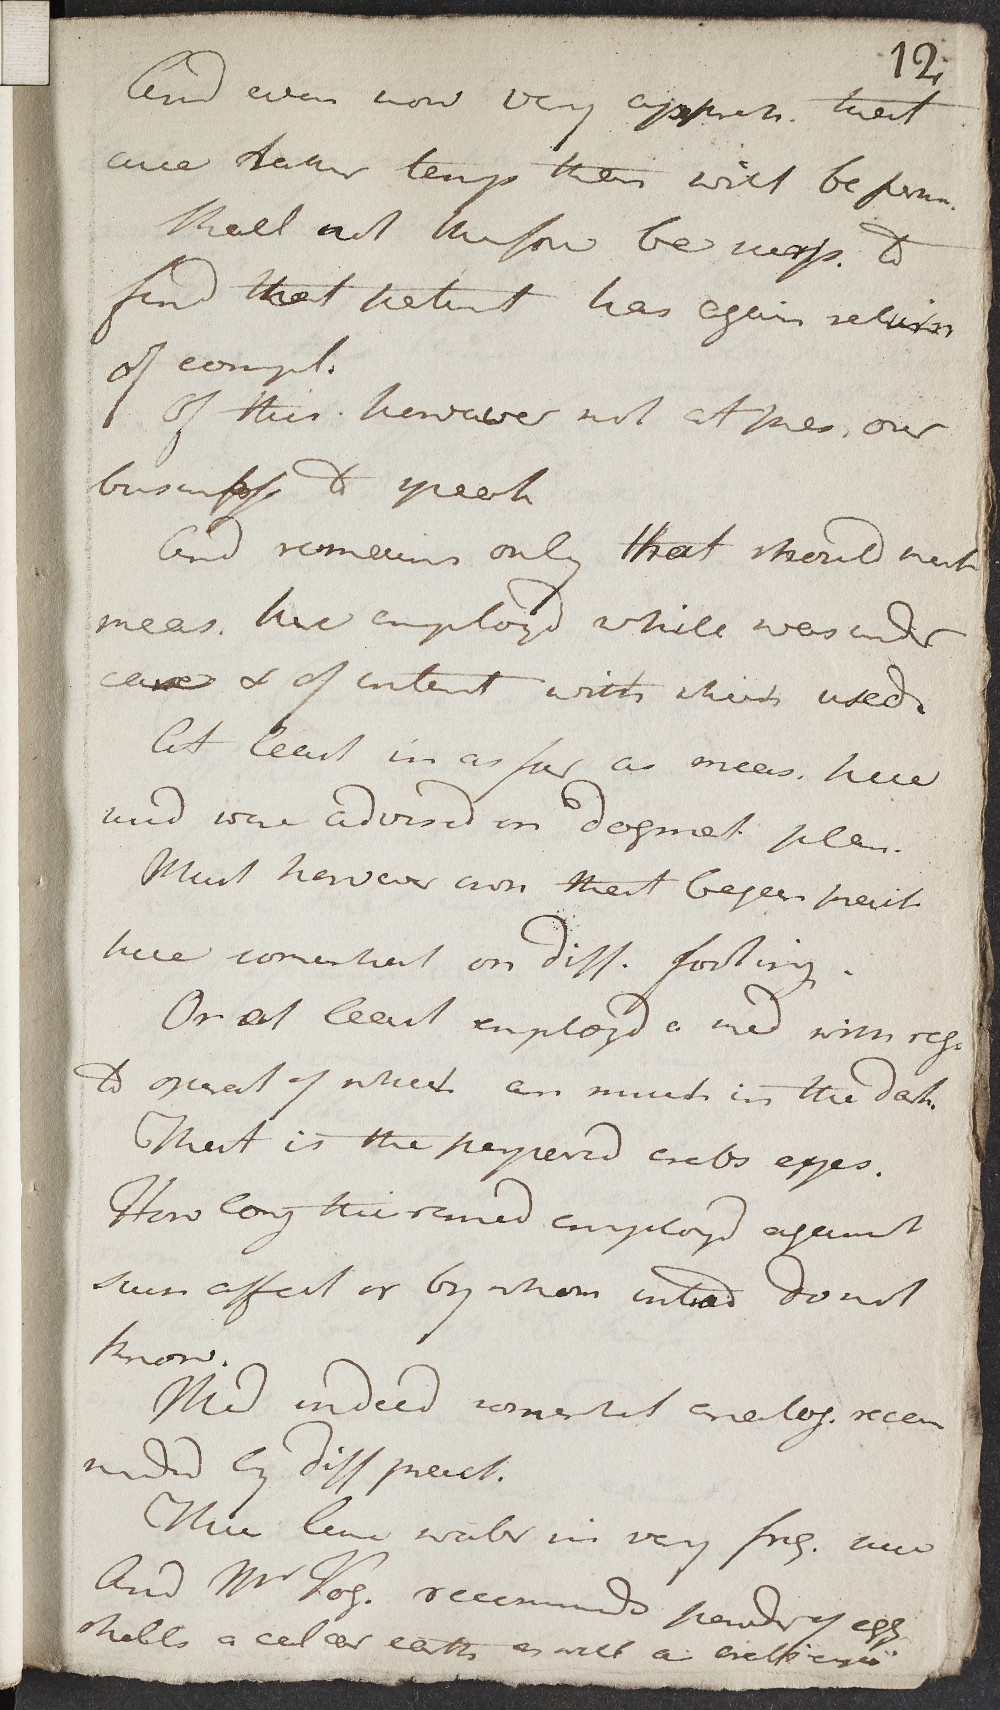 12
And even now very appreh. that
cure rather temp than will be perm.
Shall not therfore be surp. to
find that patient has again return
of compl.
Of this however not at pres. our
business to speak
And remains only that should ment
meas. here employd while was under
care & of intent with which used.
At least in as far as meas. here
used were advised on dogmat. plan.
Must however own that began pract
here somewhat on diff. footing.
Or at least employd a med with reg.
to operat of which am much in the dark.
That is the prepared crabs eyes.
How long this remed employd against
such affect or by whom introd do not
know.
Med indeed somewhat analog. recom
mended by diff pract.
Thus lime water in very freq. use
And Mr Vog. recommends powder of egg
shells a calcar earth as well as crabs eyes